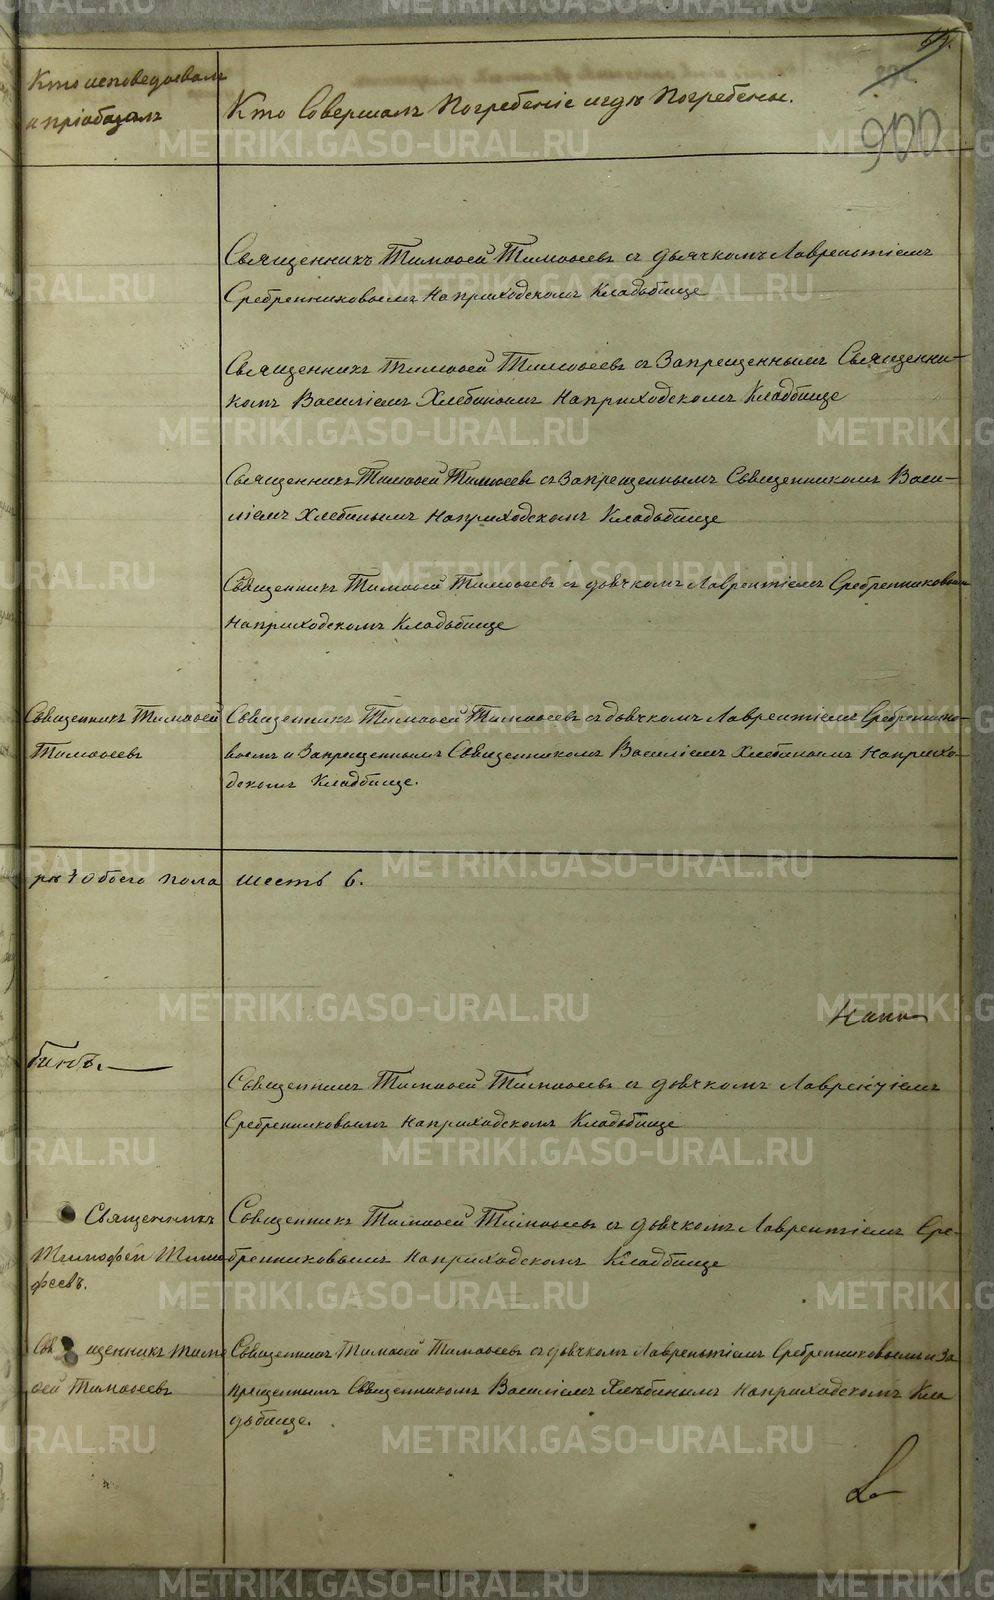 900
Кто исповедовалъ
и пріобщалъ
Кто Совершалъ Погребеніе и гдѣ Погребены.
Священникъ Тимоѳей Тимоѳеевъ съ дьячкомъ Лаврентіемъ
Сребренниковымъ на приходскомъ Кладьбище
Священникъ Тимоѳей Тимоѳеевъ съ Запрещеннымъ Священни-
комъ Василіемъ Хлебинымъ на приходскомъ Кладбище
Священникъ Тимоѳей Тимоѳеевъ съ Запрещеннымъ Священникомъ Васи-
ліемъ Хлебинымъ на приходскомъ Кладьбище
Священникъ Тимоѳей Тимоѳеевъ съ дьячкомъ Лаврентіемъ Сребренниковымъ
на приходскомъ Кладьбище
Священникъ Тимоѳей
Тимоѳеевъ
Священникъ Тимоѳей Тимоѳеевъ съ дьячкомъ Лаврентіемъ Сребреннико-
вымъ и Запрещеннымъ Священникомъ Василіемъ Хлебинымъ на прихо-
дскомъ Кладбище.
рѣ Обоего пола шесть 6.
бинъ.
Священникъ Тимоѳей Тимоѳеевъ съ дьячкомъ Лаврентіемъ
Сребренниковымъ на приходскомъ Кладьбище
Священникъ
Тимофей Тимо
феевъ.
Священникъ Тимоѳей Тимоѳеевъ съ дьячкомъ Лаврентіемъ Сре-
бренниковымъ на приходскомъ Кладбище
Священникъ Тимо
ѳей Тимоѳеевъ
Священникъ Тимоѳей Тимоѳеевъ съ дьячкомъ Лаврентіемъ Сребренниковымъ и За
прещеннымъ Священникомъ Василіемъ Хлѣбинымъ на приходскомъ Кла
дьбище.
METRIKI.GASO-URAL.RU